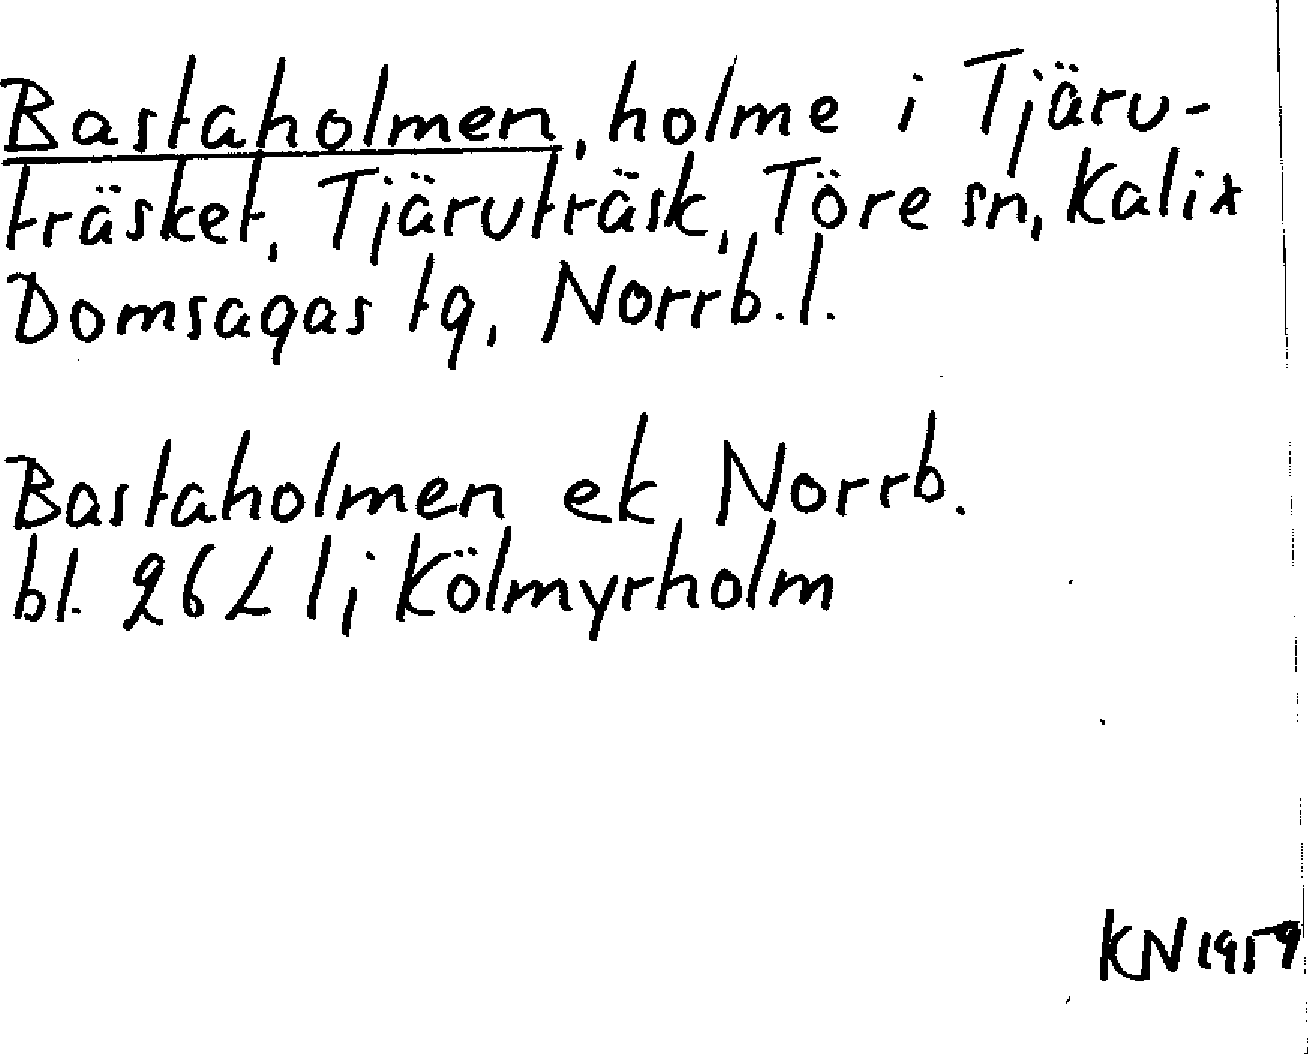 Bastaholmen, holme i Tjäru-
träsket, Tjäruträsk, Töre sn, Kalix
Domsagas tg, Norrb. l.
Bastaholmen ek Norrb.
bl. 26 L 1; Kölmyrholm
KN 1959